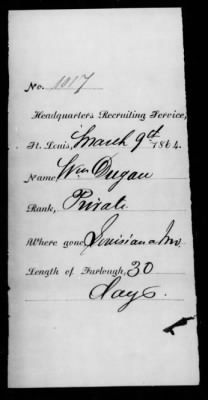 No. 1017
Headquarters Recruiting Service,
St. Louis, March 9th 1864.
Name, Wm Dugan
Rank, Private
Where gone, Louisiana Mo.
Length of Furlough, 30
days.